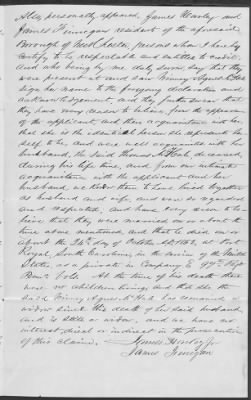 Also personally appeared, James Hawley and
James Finnegan resident of the aforesaid
Borough of West Chester, persons whom I hereby
certify to be respectable and entitled to credit,
and who being by me duly sworn say that they
were present at and saw
sign her name to the foregoing declaration and
acknowledgement, and they further swear that
they have every reason to believe, from the appearance
of the applicant, and their acquaintance with her,
that she is the identical person she represents her
self to be, and were well acquainted with her
husband, the said Thomas deceased,
during his life time, and from our intimate
acquaintance with the applicant and her
husband, we knew them to have lived together
as husband and wife, and were so regarded
and respected, and have every reason to be
lieve that they were married on or about the
time above mentioned, and that he died on or
about the 24th day of October 1862, at Port
Royal, South Carolina, in the service of the United
States, as a private in Company E 97th Regt
Penn'a Vols. At the time of his death there
were no children living, and that she the
said Agnes has remained a
widow since the death of her said husband,
and is still a widow, and we have no
interest direct or indirect in the prosecution
of this claim. James Hawley Jr
James Finnegan